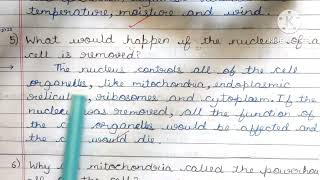 temperature, moisture and wind.
5) What would happen if the nucleus of a
cell is removed?
→ The nucleus controls all of the cell
organelles, like mitochondria, endoplasmic
reticulum, ribosomes and cytoplasm. If the
nucleus was removed, all the function of
the cell organelles would be affected and
the cell would die.
6) Why mitochondria called the powerhou
of the cell?